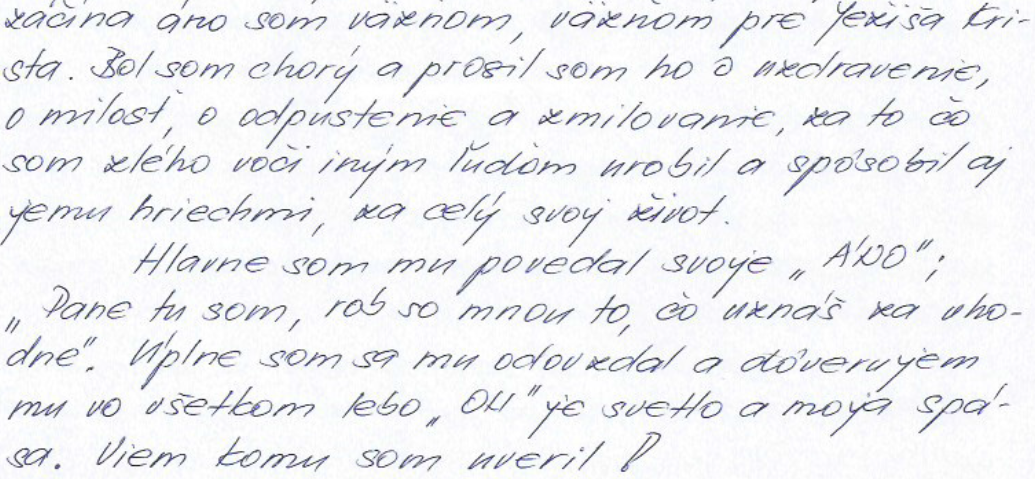 začína áno som väzňom, väzňom pre Ježiša Kri-
sta. Bol som chorý a prosil som ho o uzdravenie,
o milosť, o odpustenie a zmilovanie, za to čo
som zlého voči iným ľuďom urobil a spôsobil aj
jemu hriechmi, za celý svoj život.
Hlavne som mu povedal svoje „ÁNO“;
„Pane tu som, rob so mnou to, čo uznáš za vho-
dné“. Úplne som sa mu odovzdal a dôverujem
mu vo všetkom lebo „ON“ je svetlo a moja spá-
sa. Viem komu som uveril!